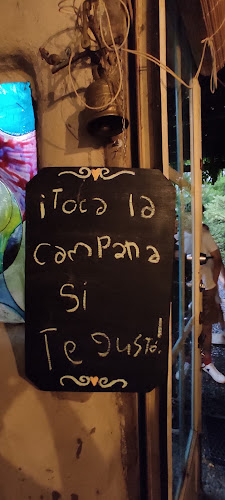 ¡Toca la
campana
si
Te gustó!